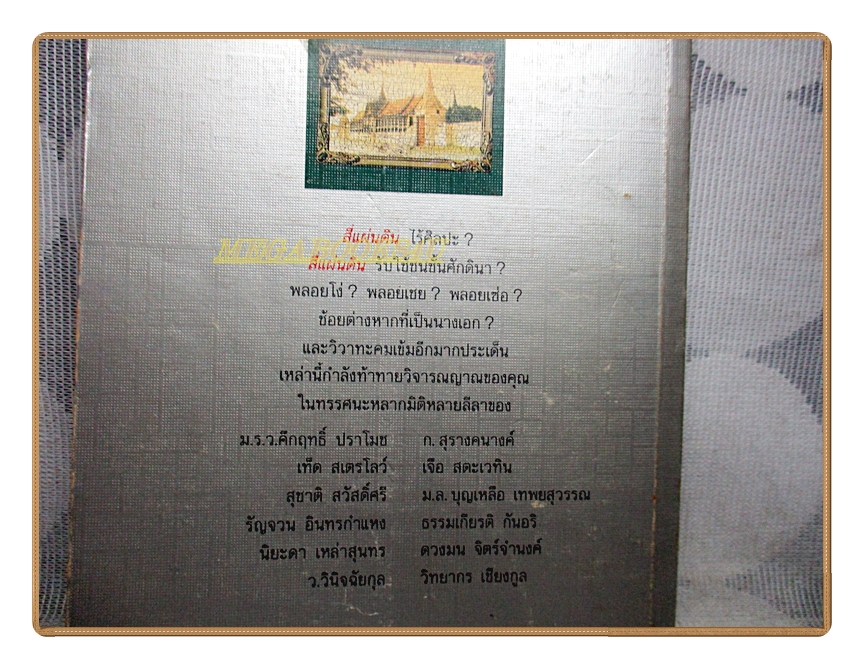 สี่แผ่นดิน ไร้ศิลปะ ?
สี่แผ่นดิน รับใช้ชนชั้นศักดินา ?
พลอยโง่ ? พลอยเชย ? พลอยเซ่อ ?
ช้อยต่างหากที่เป็นนางเอก ?
และวิวาทะคมเข้มอีกมากประเด็น
เหล่านี้กำลังท้าทายวิจารณญาณของคุณ
ในทรรศนะหลากมิติหลายลีลาของ
ม.ร.ว.คึกฤทธิ์ ปราโมช ก. สุรางคนางค์
เท็ด สเตรโลว์ เจือ สตะเวทิน
สุชาติ สวัสดิ์ศรี ม.ล. บุญเหลือ เทพยสุวรรณ
รัญจวน อินทรกำแหง ธรรมเกียรติ กันอริ
นิยะดา เหล่าสุนทร ดวงมน จิตร์จำนงค์
ว.วินิจฉัยกุล วิทยากร เชียงกูล